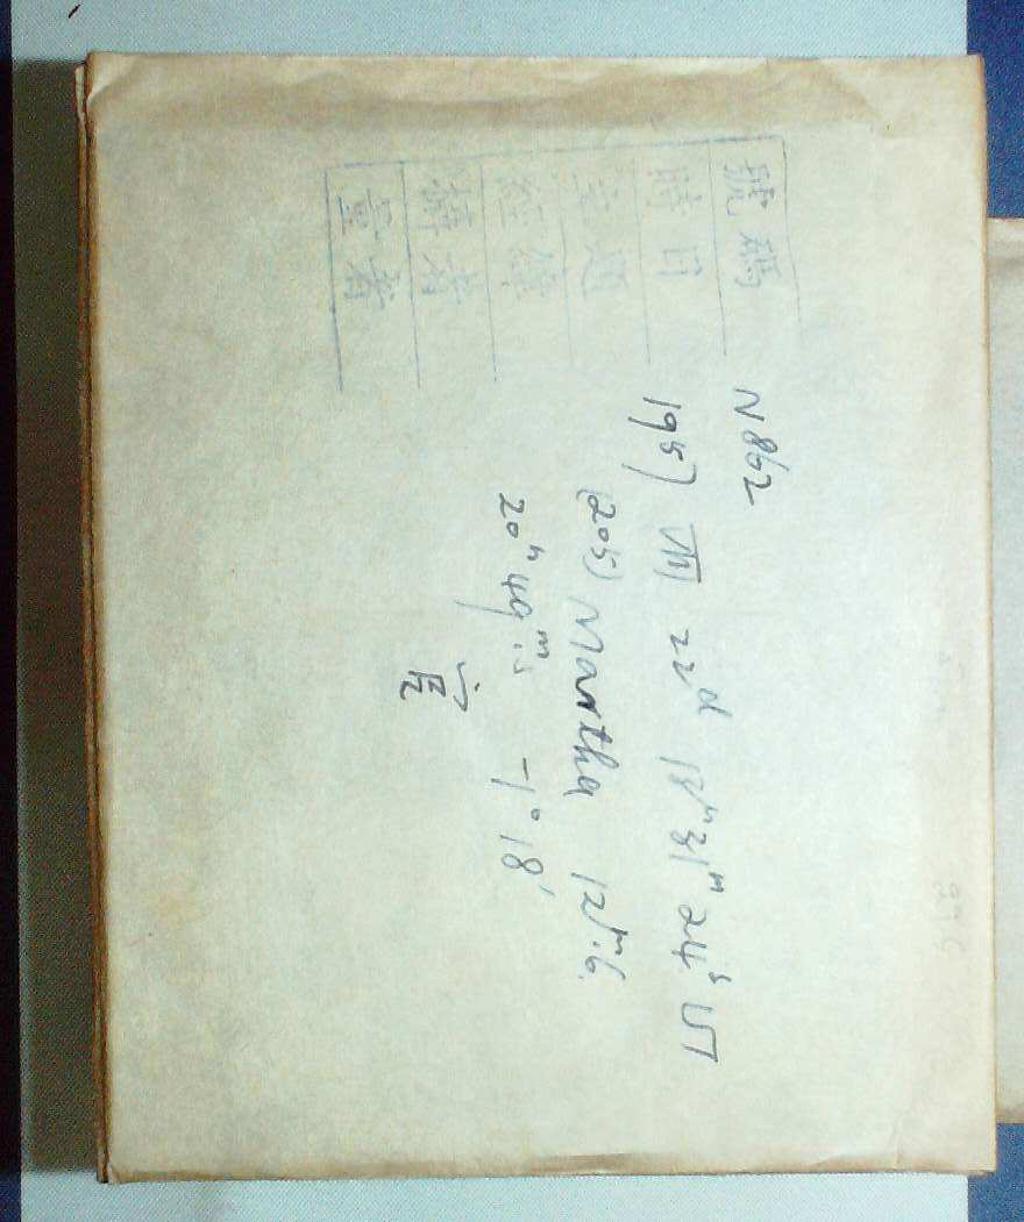 號碼 N862
時日 1957 VIII 22ᵈ 18ʰ31ᵐ24ˢ UT
主題 (205) Martha 12ᵐ.6
經緯 20ʰ49ᵐ.5 -1°18'
攝者
量者